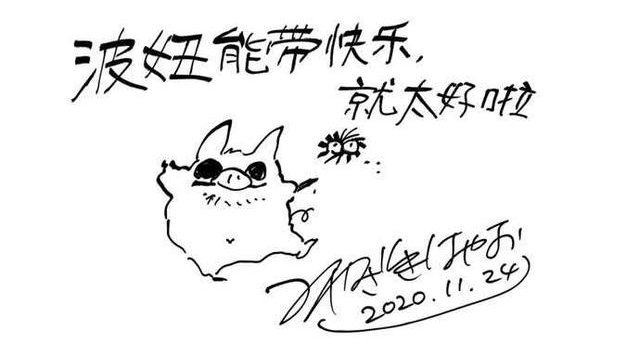 波妞能带快乐,
就太好啦
みやざきはやお
2020.11.24